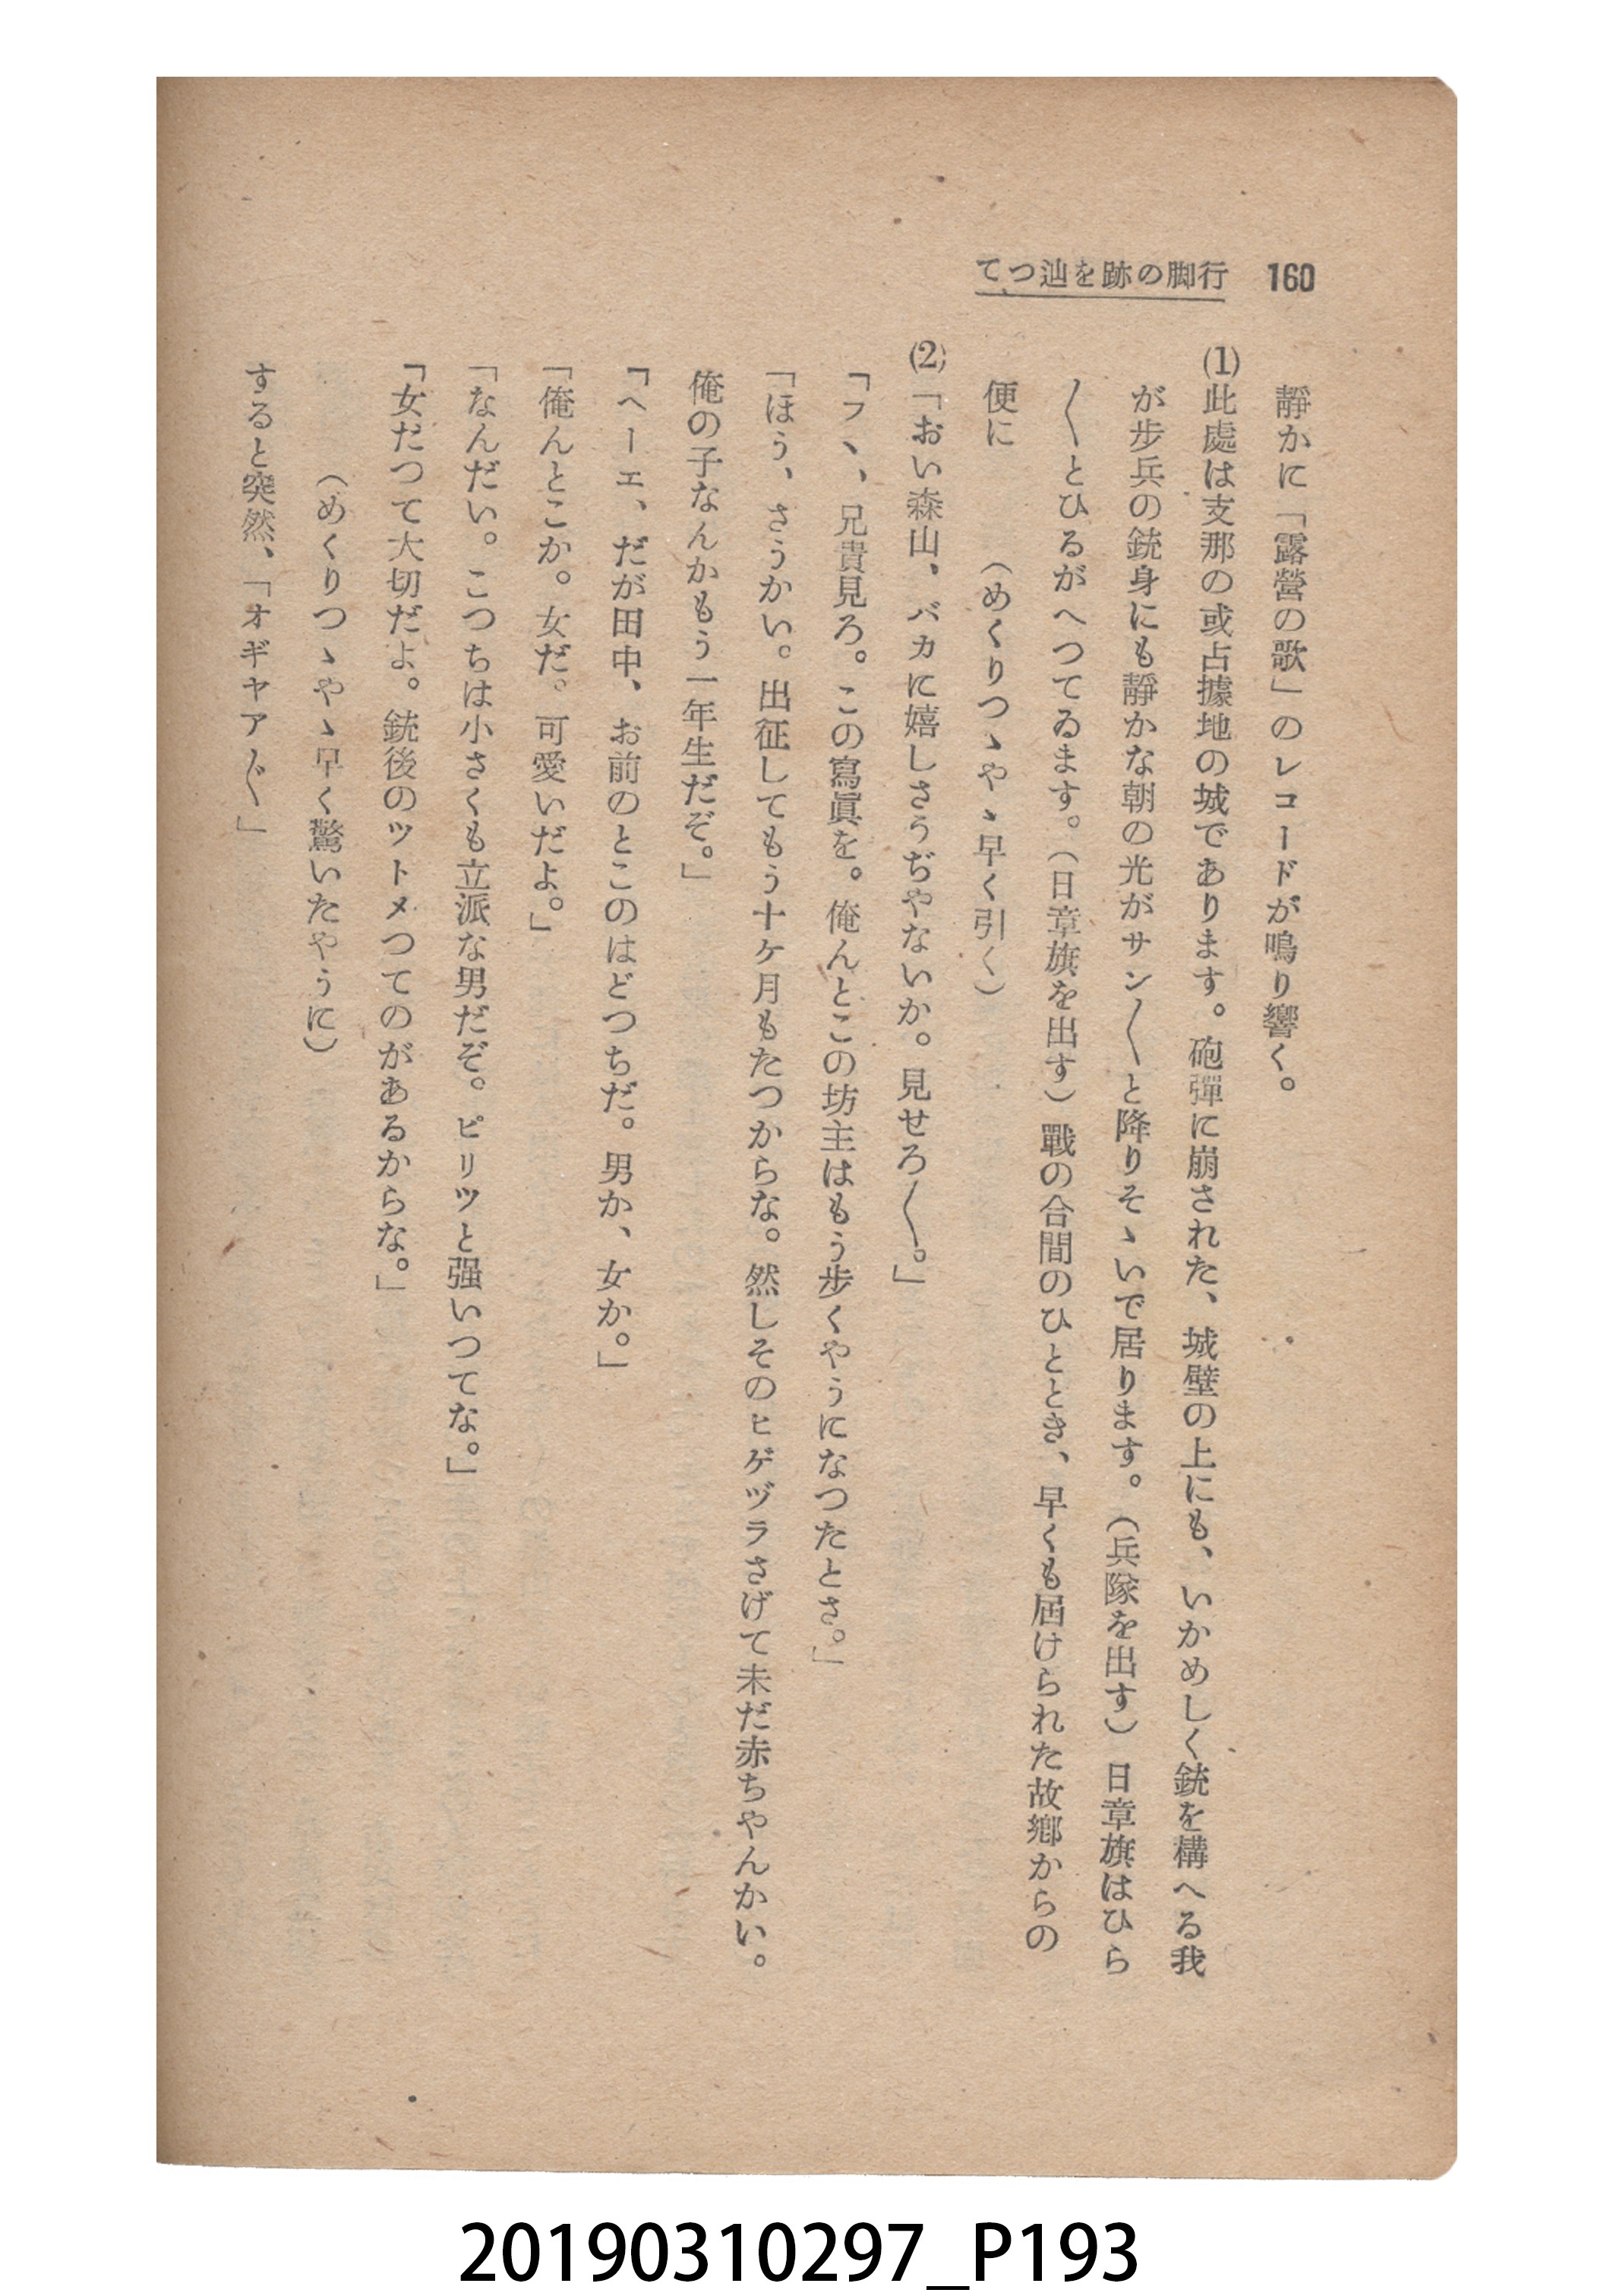 160 てつ辿を跡の脚行
靜かに「露營の歌」のレコードが鳴り響く。
(1)此處は支那の或占據地の城であります。砲彈に崩された、城壁の上にも、いかめしく銃を構へる我
が歩兵の銃身にも靜かな朝の光がサン〳〵と降りそゝいで居ります。（兵隊を出す）日章旗はひら
〳〵とひるがへつてゐます。（日章旗を出す）戰の合間のひととき、早くも届けられた故鄕からの
便に　（めくりつゝやゝ早く引く）
(2)「おい森山、バカに嬉しさうぢやないか。見せろ〳〵。」
「フヽ、兄貴見ろ。この寫眞を。俺んとこの坊主はもう歩くやうになつたとさ。」
「ほう、さうかい。出征してもう十ケ月もたつからな。然しそのヒゲヅラさげて未だ赤ちやんかい。
俺の子なんかもう一年生だぞ。」
「ヘーエ、だが田中、お前のとこのはどつちだ。男か、女か。」
「俺んとこか。女だ。可愛いだよ。」
「なんだい。こつちは小さくも立派な男だぞ。ピリツと强いつてな。」
「女だつて大切だよ。銃後のツトメつてのがあるからな。」
（めくりつゝやゝ早く驚いたやうに）
すると突然、「オギヤア〴〵」
20190310297_P193